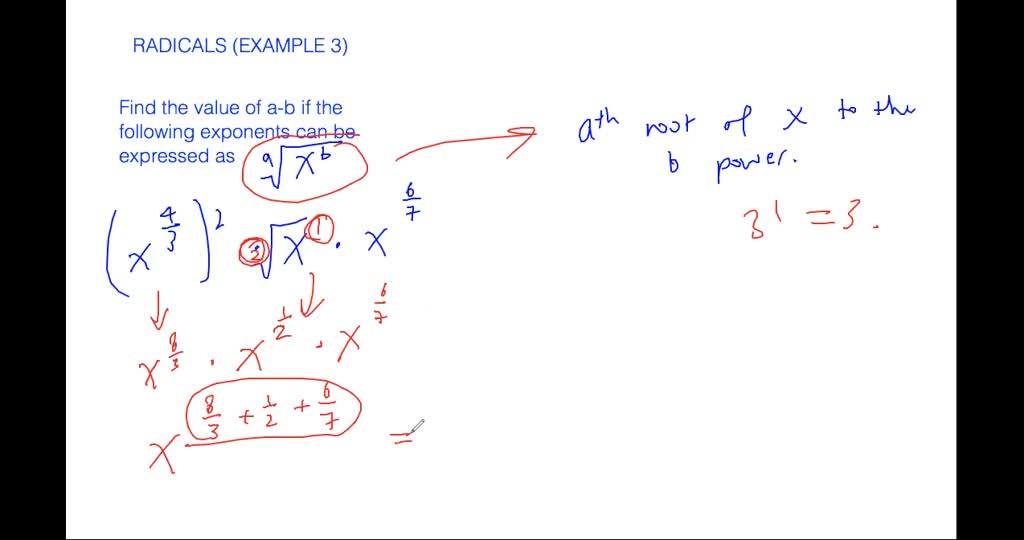 RADICALS (EXAMPLE 3)
Find the value of a-b if the
following exponents can be
expressed as ᵃ√(x^b)
aᵗʰ root of x to the
b power.
3¹ = 3.
(x^(4/3))² ²√(x^1) · x^(6/7)
x^(8/3) · x^(1/2) · x^(6/7)
x^(8/3 + 1/2 + 6/7) =